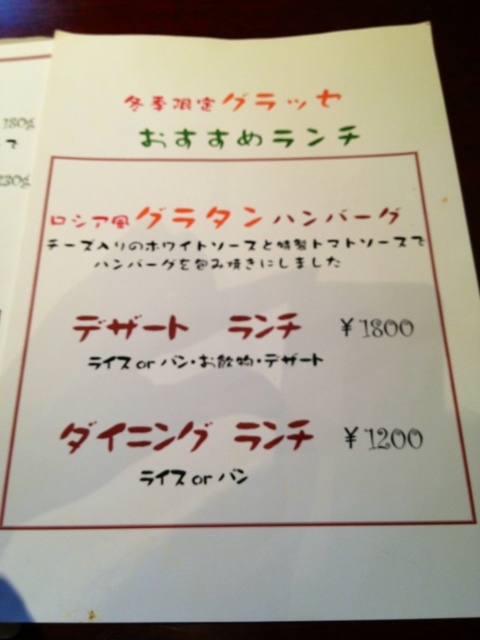 冬季限定グラッセ
おすすめランチ
ロシア風グラタンハンバーグ
チーズ入りのホワイトソースと特製トマトソースで
ハンバーグを包み焼きにしました
デザート ランチ ¥1800
ライス or パン・お飲物・デザート
ダイニング ランチ ¥1200
ライス or パン
180g
で
230g